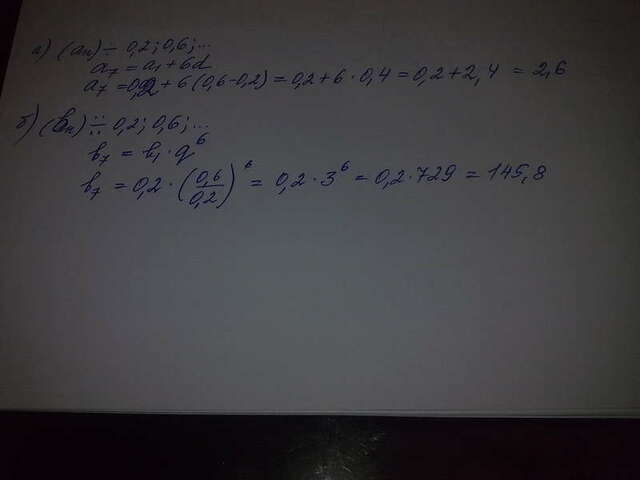 а) (aₙ) ÷ 0,2; 0,6; ...
a₇ = a₁ + 6d
a₇ = 0,2 + 6 (0,6 - 0,2) = 0,2 + 6 · 0,4 = 0,2 + 2,4 = 2,6
б) (bₙ) ∺ 0,2; 0,6; ...
b₇ = b₁ · q⁶
b₇ = 0,2 · (0,6/0,2)⁶ = 0,2 · 3⁶ = 0,2 · 729 = 145,8